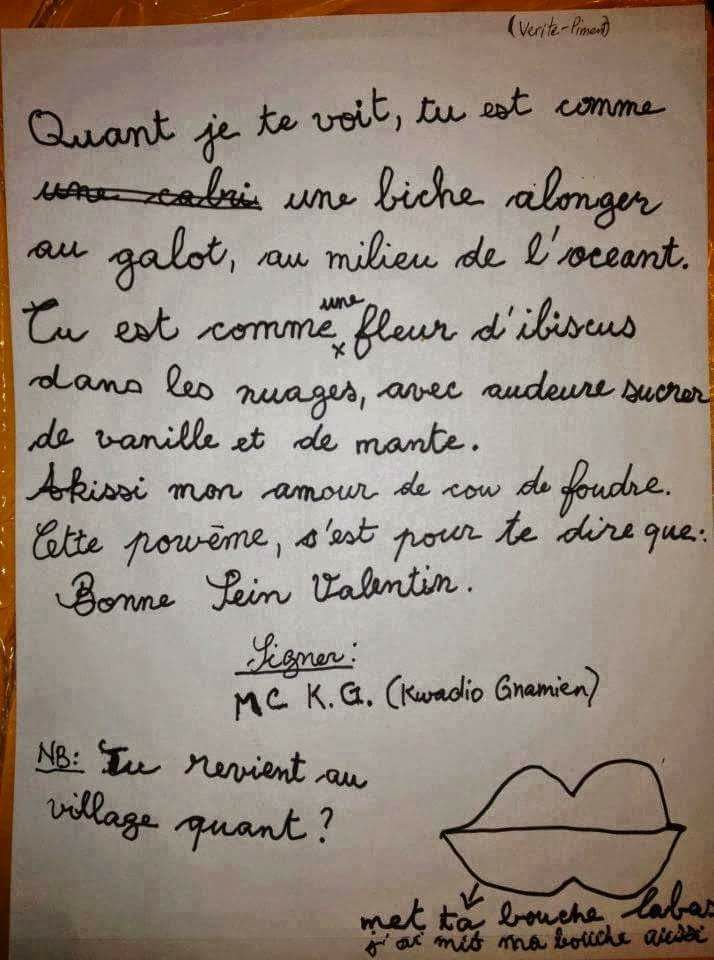 (Verite-Piment)
Quant je te voit, tu est comme
une cabri une biche alonger
au galot, au milieu de l'oceant.
Tu est comme une fleur d'ibiscus
dans les nuages, avec audeure sucrer
de vanille et de mante.
Akissi mon amour de cou de foudre.
Cette powème, s'est pour te dire que:
Bonne Sein Valentin.
Signer:
MC K.G. (Kwadio Gnamien)
NB: Tu revient au
village quant?
met ta bouche labas
j'ai mis ma bouche aussi